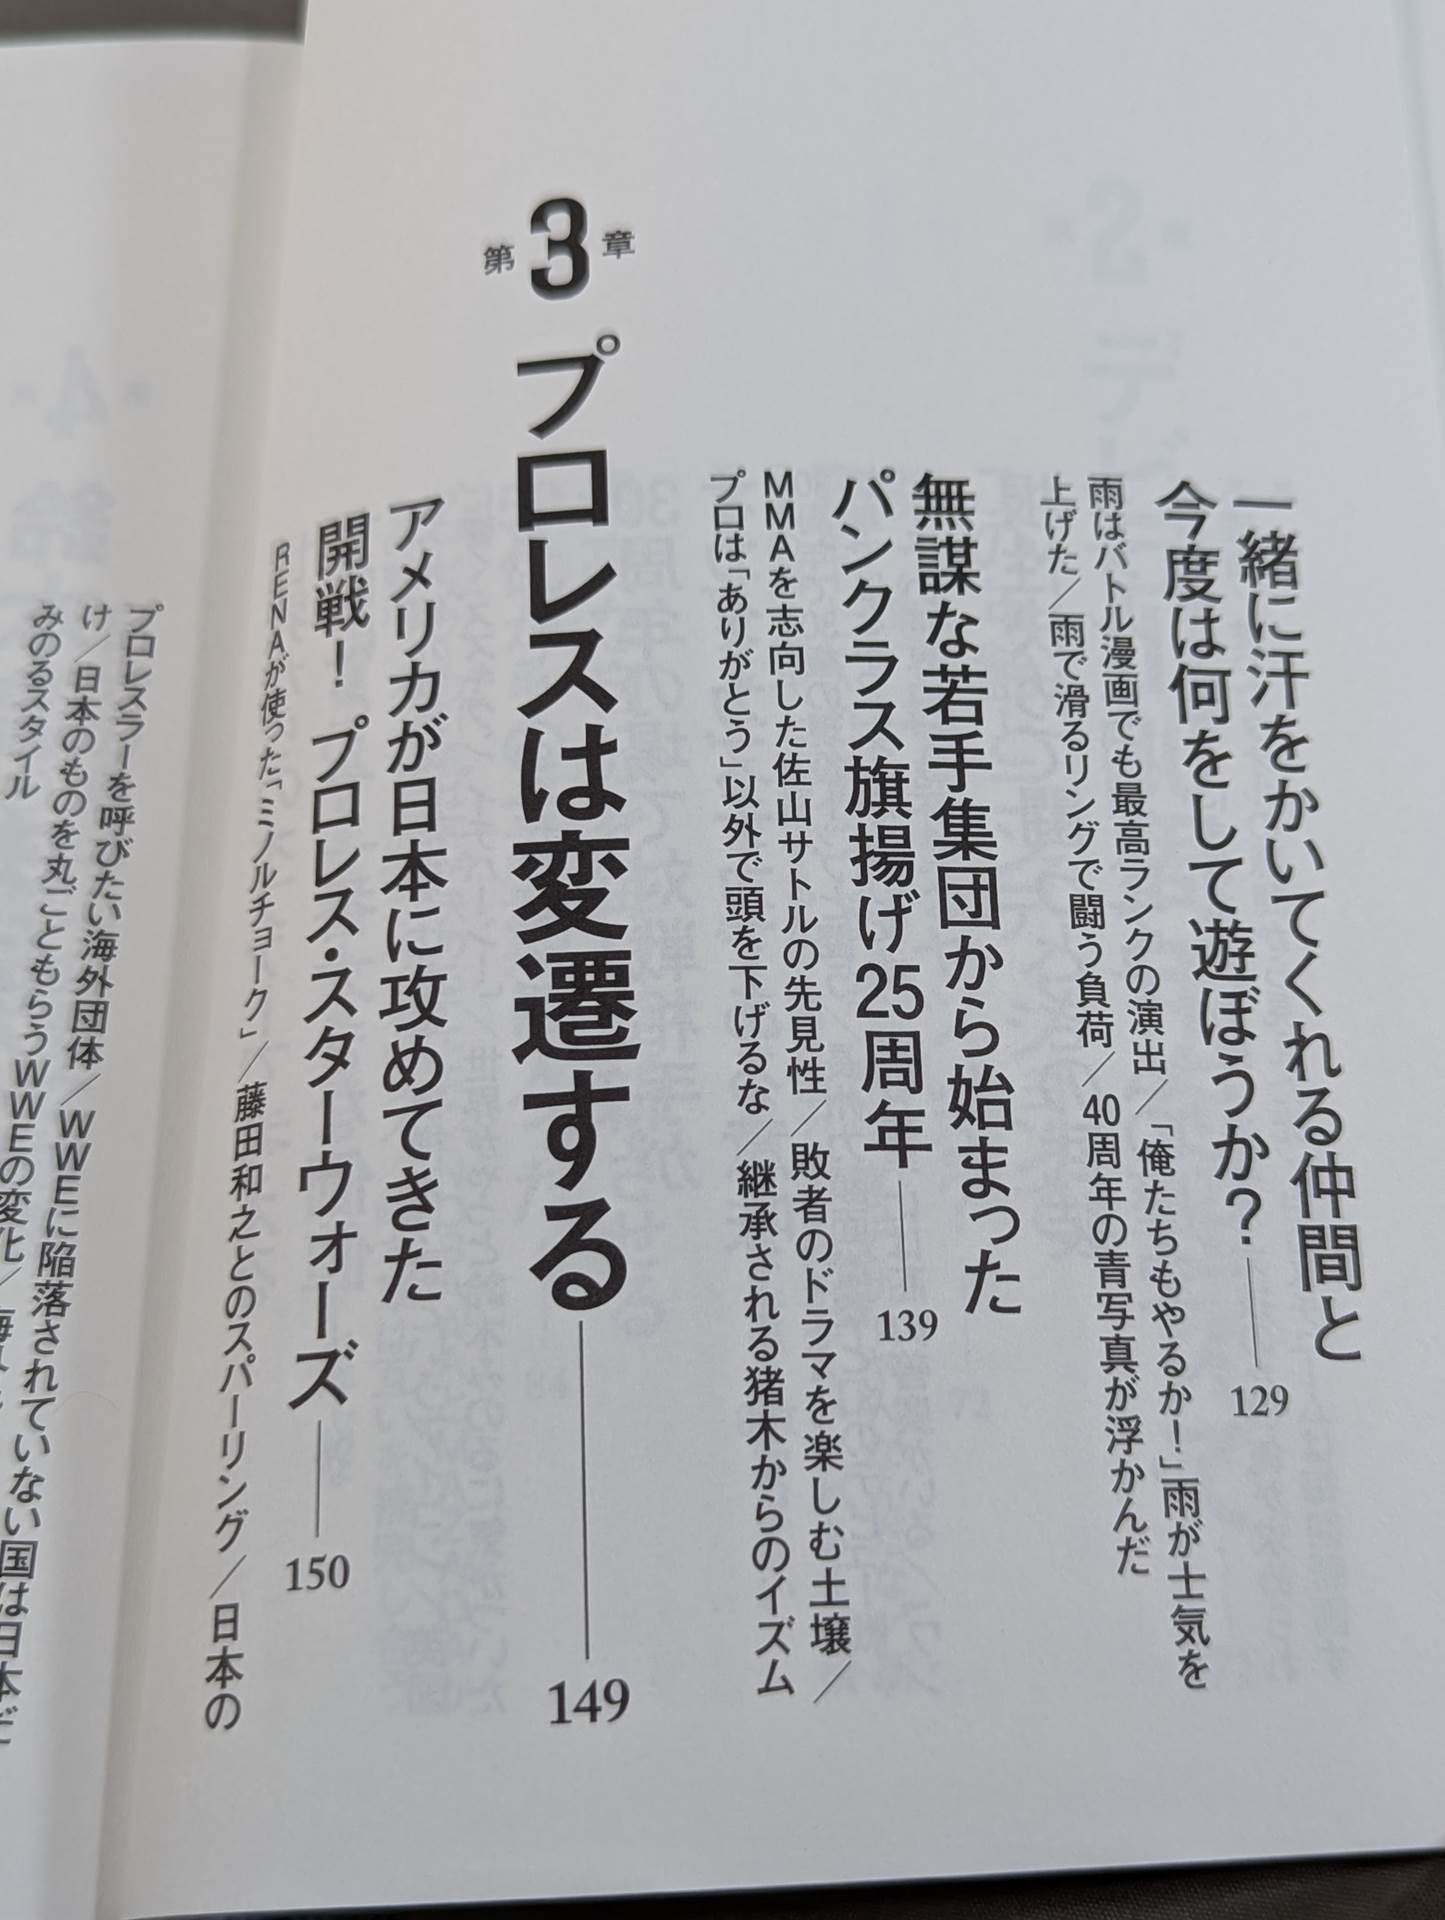 一緒に汗をかいてくれる仲間と
今度は何をして遊ぼうか？ 129
雨はバトル漫画でも最高ランクの演出／「俺たちもやるか！」雨が士気を
上げた／雨で滑るリングで闘う負荷／40周年の青写真が浮かんだ
無謀な若手集団から始まった
パンクラス旗揚げ25周年 139
MMAを志向した佐山サトルの先見性／敗者のドラマを楽しむ土壌／
プロは「ありがとう」以外で頭を下げるな／継承される猪木からのイズム
第3章 プロレスは変遷する 149
アメリカが日本に攻めてきた
開戦！ プロレス・スターウォーズ 150
RENAが使った「ミノルチョーク」／藤田和之とのスパーリング／日本の
プロレスラーを呼びたい海外団体／WWEに陥落されていない国は日本だ
け／日本のものを丸ごともらうWWEの変化／
みのるスタイル